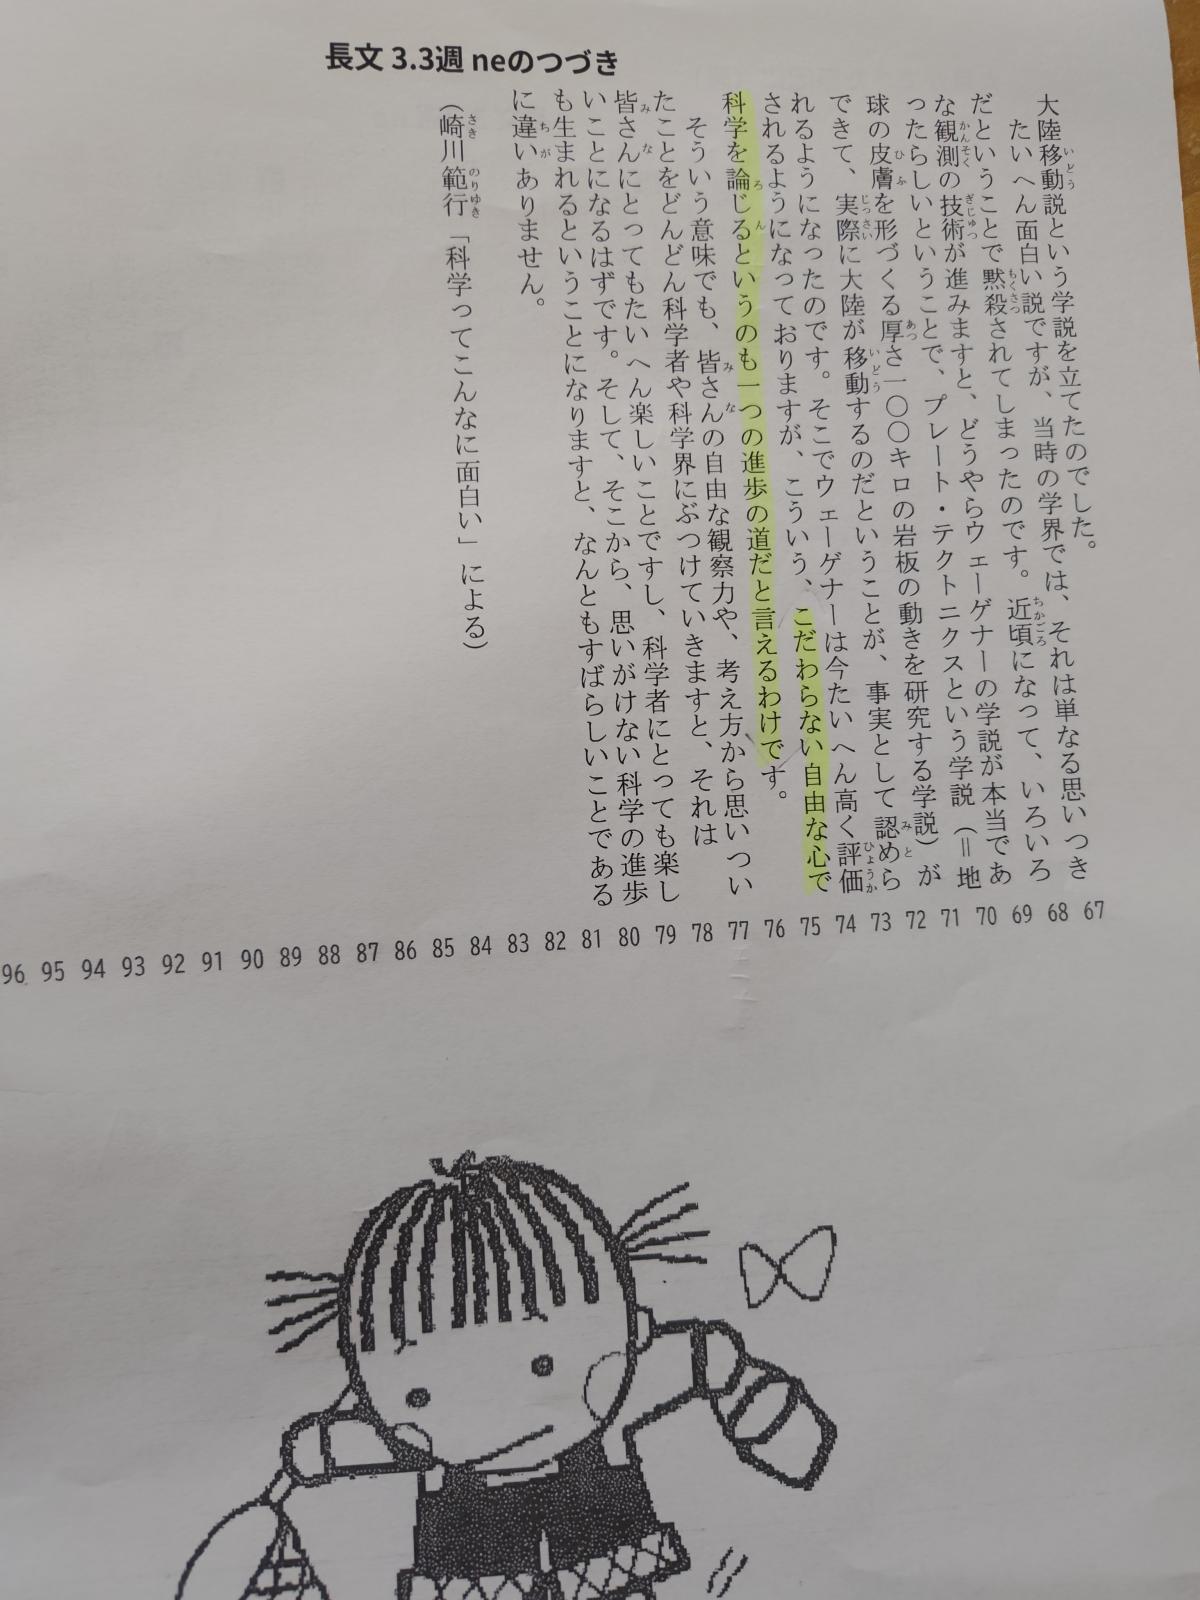 長文 3.3週 neのつづき
大陸移動説という学説を立てたのでした。
たいへん面白い説ですが、当時の学界では、それは単なる思いつき
だということで黙殺されてしまったのです。近頃になって、いろいろ
な観測の技術が進みますと、どうやらウェーゲナーの学説が本当であ
ったらしいということで、プレート・テクトニクスという学説（＝地
球の皮膚を形づくる厚さ一〇〇キロの岩板の動きを研究する学説）が
できて、実際に大陸が移動するのだということが、事実として認めら
れるようになったのです。そこでウェーゲナーは今たいへん高く評価
されるようになっておりますが、こういう、こだわらない自由な心で
科学を論じるというのも一つの進歩の道だと言えるわけです。
そういう意味でも、皆さんの自由な観察力や、考え方から思いつい
たことをどんどん科学者や科学界にぶつけていきますと、それは
皆さんにとってもたいへん楽しいことですし、科学者にとっても楽し
いことになるはずです。そして、そこから、思いがけない科学の進歩
も生まれるということになりますと、なんともすばらしいことである
に違いありません。
（崎川範行「科学ってこんなに面白い」による）
96 95 94 93 92 91 90 89 88 87 86 85 84 83 82 81 80 79 78 77 76 75 74 73 72 71 70 69 68 67